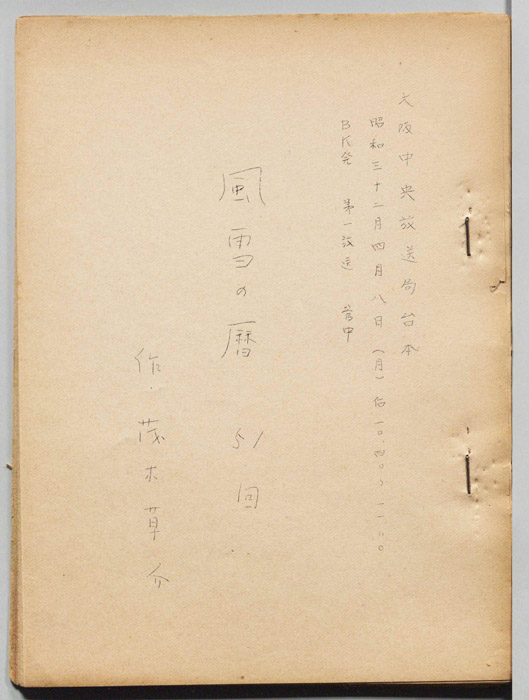 大阪中央放送局台本
昭和三十二月四月八日（月）一〇.四〇〜一一.〇〇
BK発　第一放送　管中
風雪の暦　51回
作・茂木草介